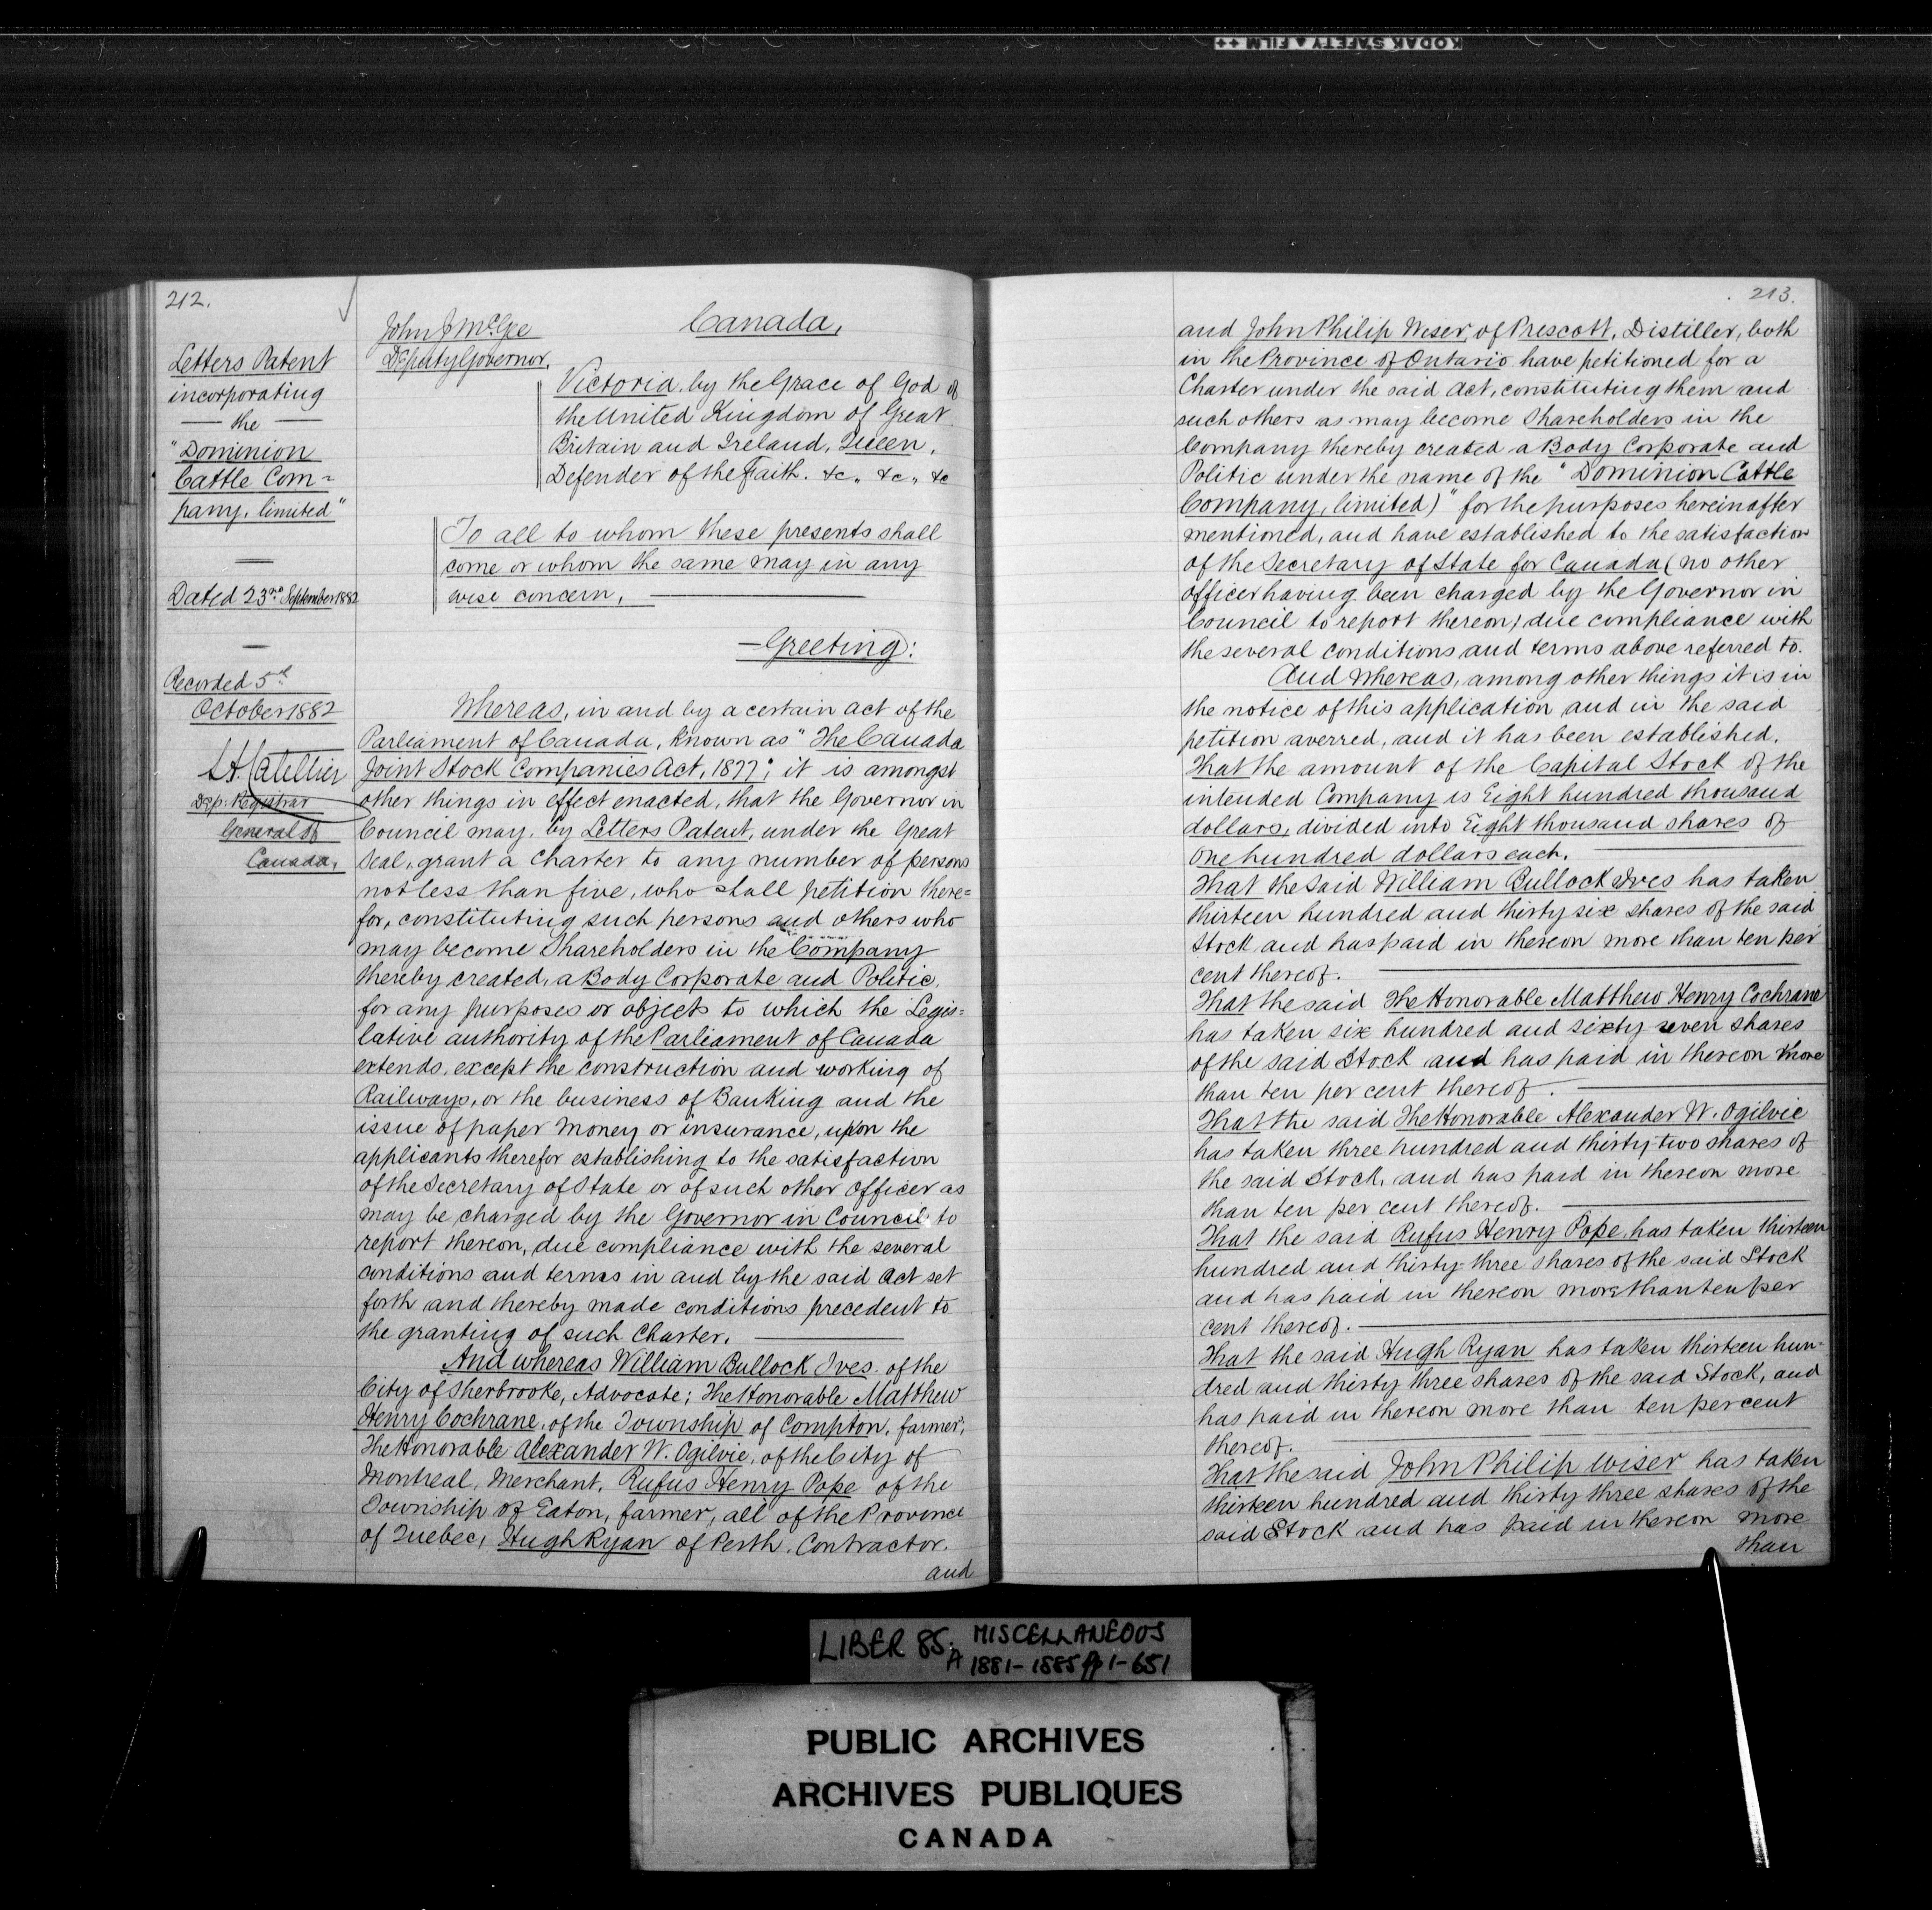 KODAK SAFETY FILM ++
212.
Letters Patent
incorporating
the
"Dominion
Cattle Com=
pany, limited"
Dated 23rd September 1882
Recorded 5th
October 1882
Dep: Registrar
General of
Canada,
John J McGee
Deputy Governor.
Canada,
Victoria, by the Grace of God of
the United Kingdom of Great
Britain and Ireland, Queen,
Defender of the Faith. &c,, &c,, &c
To all to whom these presents shall
come or whom the same may in any
wise concern,
Greeting:
Whereas, in and by a certain act of the
Parliament of Canada, known as "The Canada
Joint Stock Companies Act, 1877," it is amongst
other things in effect enacted, that the Governor in
Council may, by Letters Patent, under the Great
Seal, grant a Charter to any number of persons
not less than five, who shall petition there=
for, constituting such persons and others who
may become Shareholders in the Company
thereby created, a Body Corporate and Politic,
for any purposes or objects to which the Legis=
lative authority of the Parliament of Canada
extends, except the construction and working of
Railways, or the business of Banking and the
issue of paper money or insurance, upon the
applicants therefor establishing to the satisfaction
of the Secretary of State or of such other Officer as
may be charged by the Governor in Council to
report thereon, due compliance with the several
conditions and terms in and by the said Act set
forth and thereby made conditions precedent to
the granting of such Charter.
And whereas William Bullock Ives of the
City of Sherbrooke, Advocate; The Honorable Matthew
Henry Cochrane, of the Township of Compton, farmer;
The Honorable Alexander W. Ogilvie, of the City of
Montreal, Merchant, Rufus Henry Pope of the
Township of Eaton, farmer, all of the Province
of Quebec, Hugh Ryan of Perth, Contractor,
and
213.
and John Philip Wiser, of Prescott, Distiller, both
in the Province of Ontario have petitioned for a
Charter under the said Act, constituting them and
such others as may become Shareholders in the
Company thereby created a Body Corporate and
Politic under the name of the "Dominion Cattle
Company, limited)" for the purposes hereinafter
mentioned, and have established to the satisfaction
of the Secretary of State for Canada (no other
officer having been charged by the Governor in
Council to report thereon) due compliance with
the several conditions and terms above referred to.
And whereas, among other things it is in
the notice of this application and in the said
petition averred, and it has been established.
That the amount of the Capital Stock of the
intended Company is Eight hundred thousand
dollars, divided into Eight thousand shares of
One hundred dollars each.
That the said William Bullock Ives has taken
thirteen hundred and thirty six shares of the said
Stock and has paid in thereon more than ten per
cent thereof.
That the said The Honorable Matthew Henry Cochrane
has taken six hundred and sixty seven shares
of the said Stock and has paid in thereon more
than ten per cent thereof.
That the said The Honorable Alexander W. Ogilvie
has taken three hundred and thirty-two shares of
the said Stock, and has paid in thereon more
than ten per cent thereof.
That the said Rufus Henry Pope has taken thirteen
hundred and thirty-three shares of the said Stock
and has paid in thereon more than ten per
cent thereof.
That the said Hugh Ryan has taken thirteen hun-
dred and thirty three shares of the said Stock, and
has paid in thereon more than ten per cent
thereof.
That the said John Philip Wiser has taken
thirteen hundred and thirty three shares of the
said Stock and has paid in thereon more
than
LIBER 85. MISCELLANEOUS
A 1881-1885 pp 1-651
PUBLIC ARCHIVES
ARCHIVES PUBLIQUES
CANADA